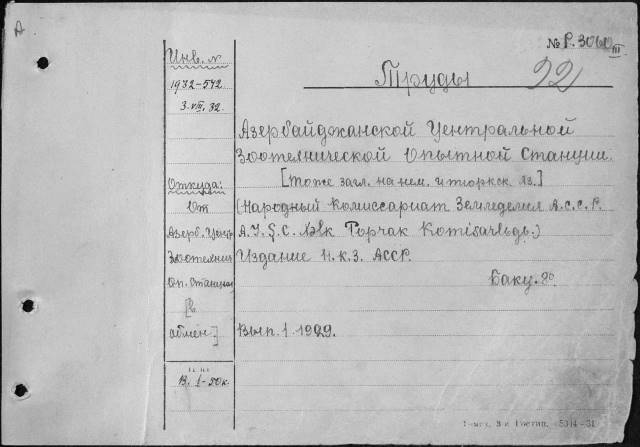 А
№ Р.3060
III
Инв. №
1932-542
3.VIII.32.
Труды
22
Азербайджанской Центральной
Зоотехнической Опытной Станции.
[Тоже загл. на нем. и тюркск. яз.]
Откуда:
От
Азерб. Центр.
Зоотехнич
Оп. Станции
[в
обмен.]
(Народный Комиссариат Земледелия А.С.С.Р.
A.I.Ş.C. Torçak
Издание Н.К.З. АССР.
Баку. 8°
Вып. 1. 1929.
В. 1-50к.
5314-31